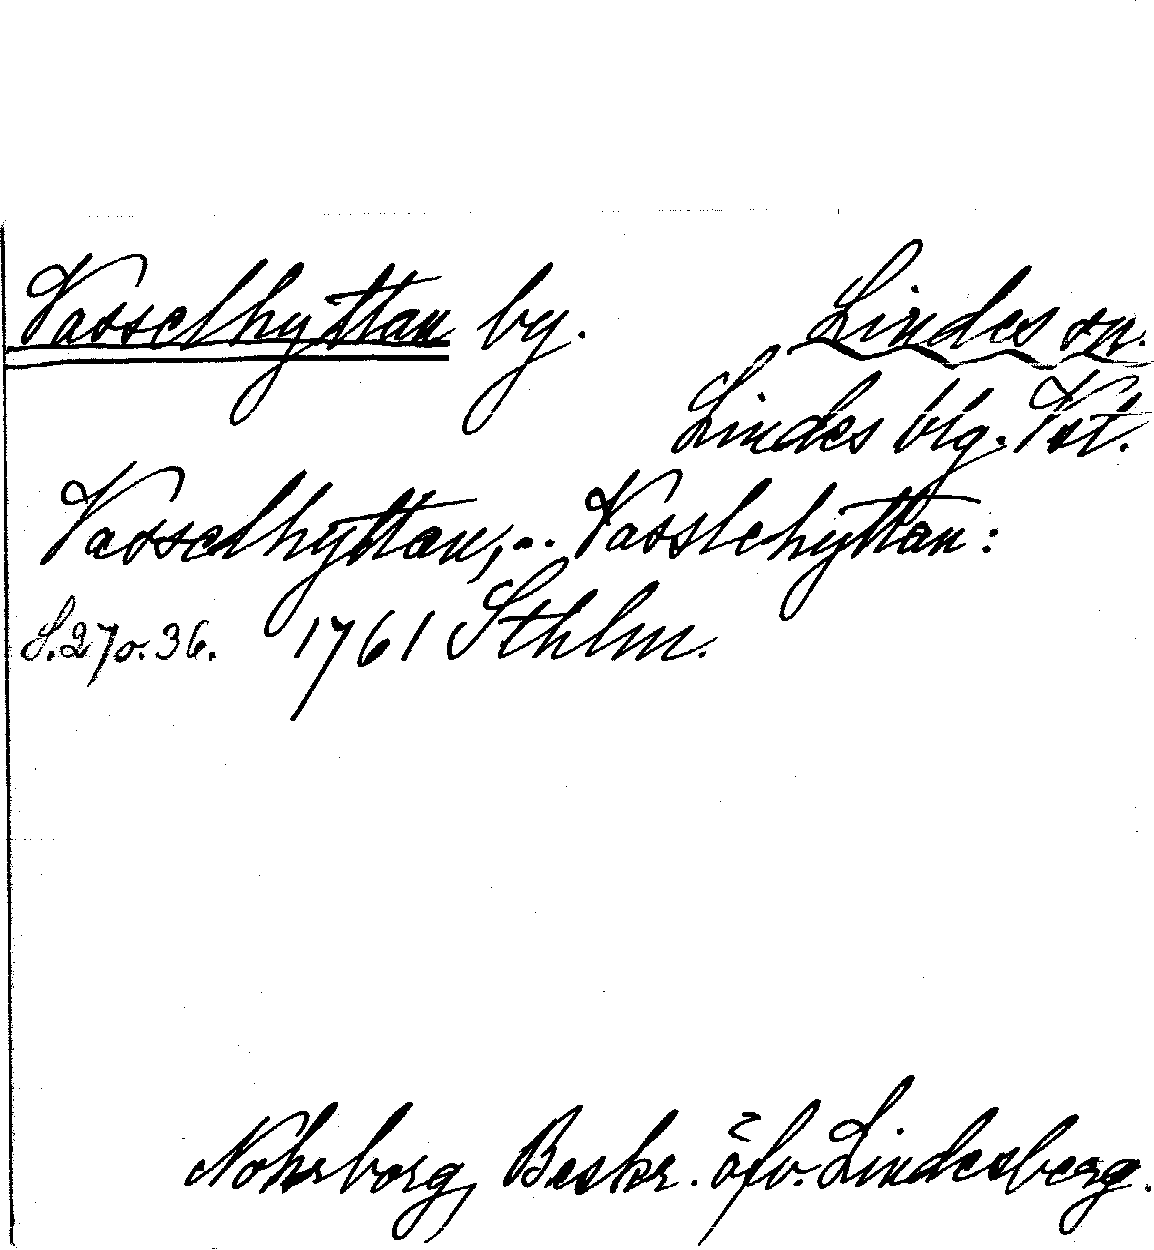 Vasselhyttan by. Lindes sn.
Lindes blg. Vstm.
Vasselhyttan, .. Vasslehyttan:
S. 27 o. 36. 1761 Sthlm.
Nohrborg, Beskr. öfv. Lindesberg.